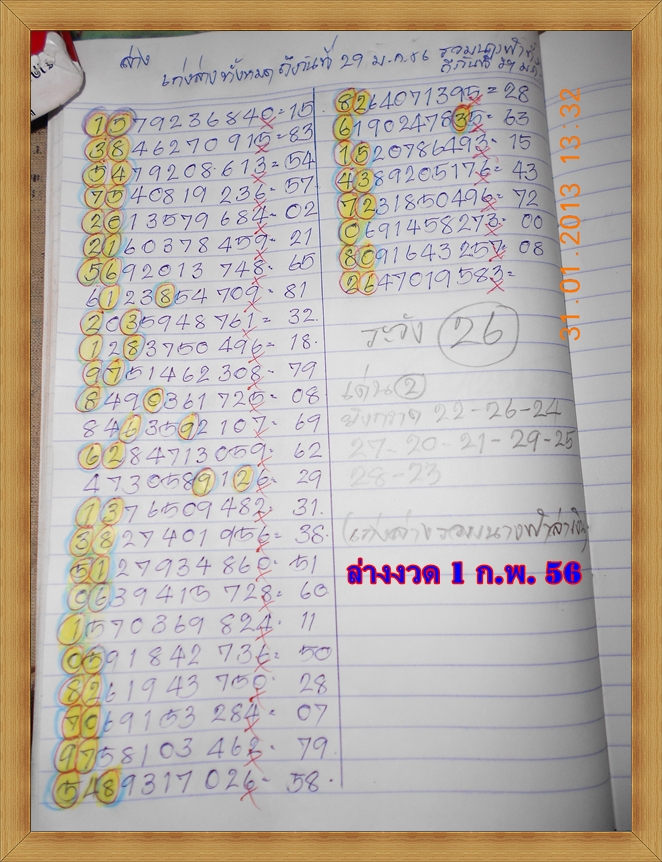 ล่าง
เก่งล่างทั้งหมด ถึงวันที่ 29 ม.ค.56
1579236840=15
3846270915=83
5479208613=54
754081923 6=57
261357968 4=02
216037845 9=21
569201374 8=65
6123854709=81
2035948761=32.
1283750496=18.
9751462308=79
8490361725=08
8463592107=69
6284713059=62
4730589126=29
1376509482=31.
3827401956=38.
5127934860=51
0639415728=60
1570369824=11
0591842736=50
8261943750=28
7069153284=07
9758103462=79
5489317026=58.
8264071395=28
6190247835=63
1520786493=15
4389205176=43
7231850496=72
0691458273=00
8091643257=08
2647019583=
ระวัง 26
เด่น 2
22-26-24
27-20-21-29-25
28-23
ล่างงวด 1 ก.พ. 56
31.01.2013 13:32